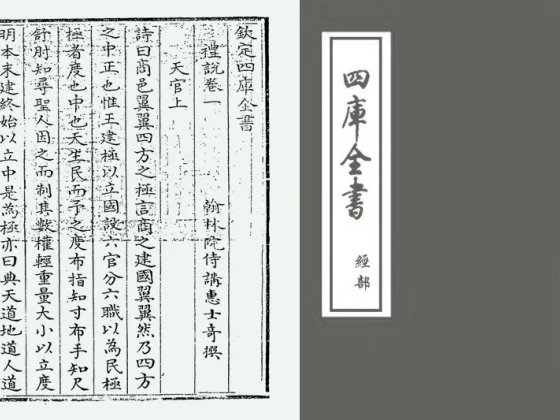 欽定四庫全書
禮說卷一
翰林院侍講惠士奇撰
天官上
詩曰商邑翼翼四方之極言商之建國翼翼然乃四方
之中正也惟王建極以立國設六官分六職以為民極
極者度也中也天生民而予之度布指知寸布手知尺
舒肘知尋聖人因之而制其數權輕重量大小以立度
明本末建終始以立中是為極亦曰典天道地道人道
四庫全書
經部